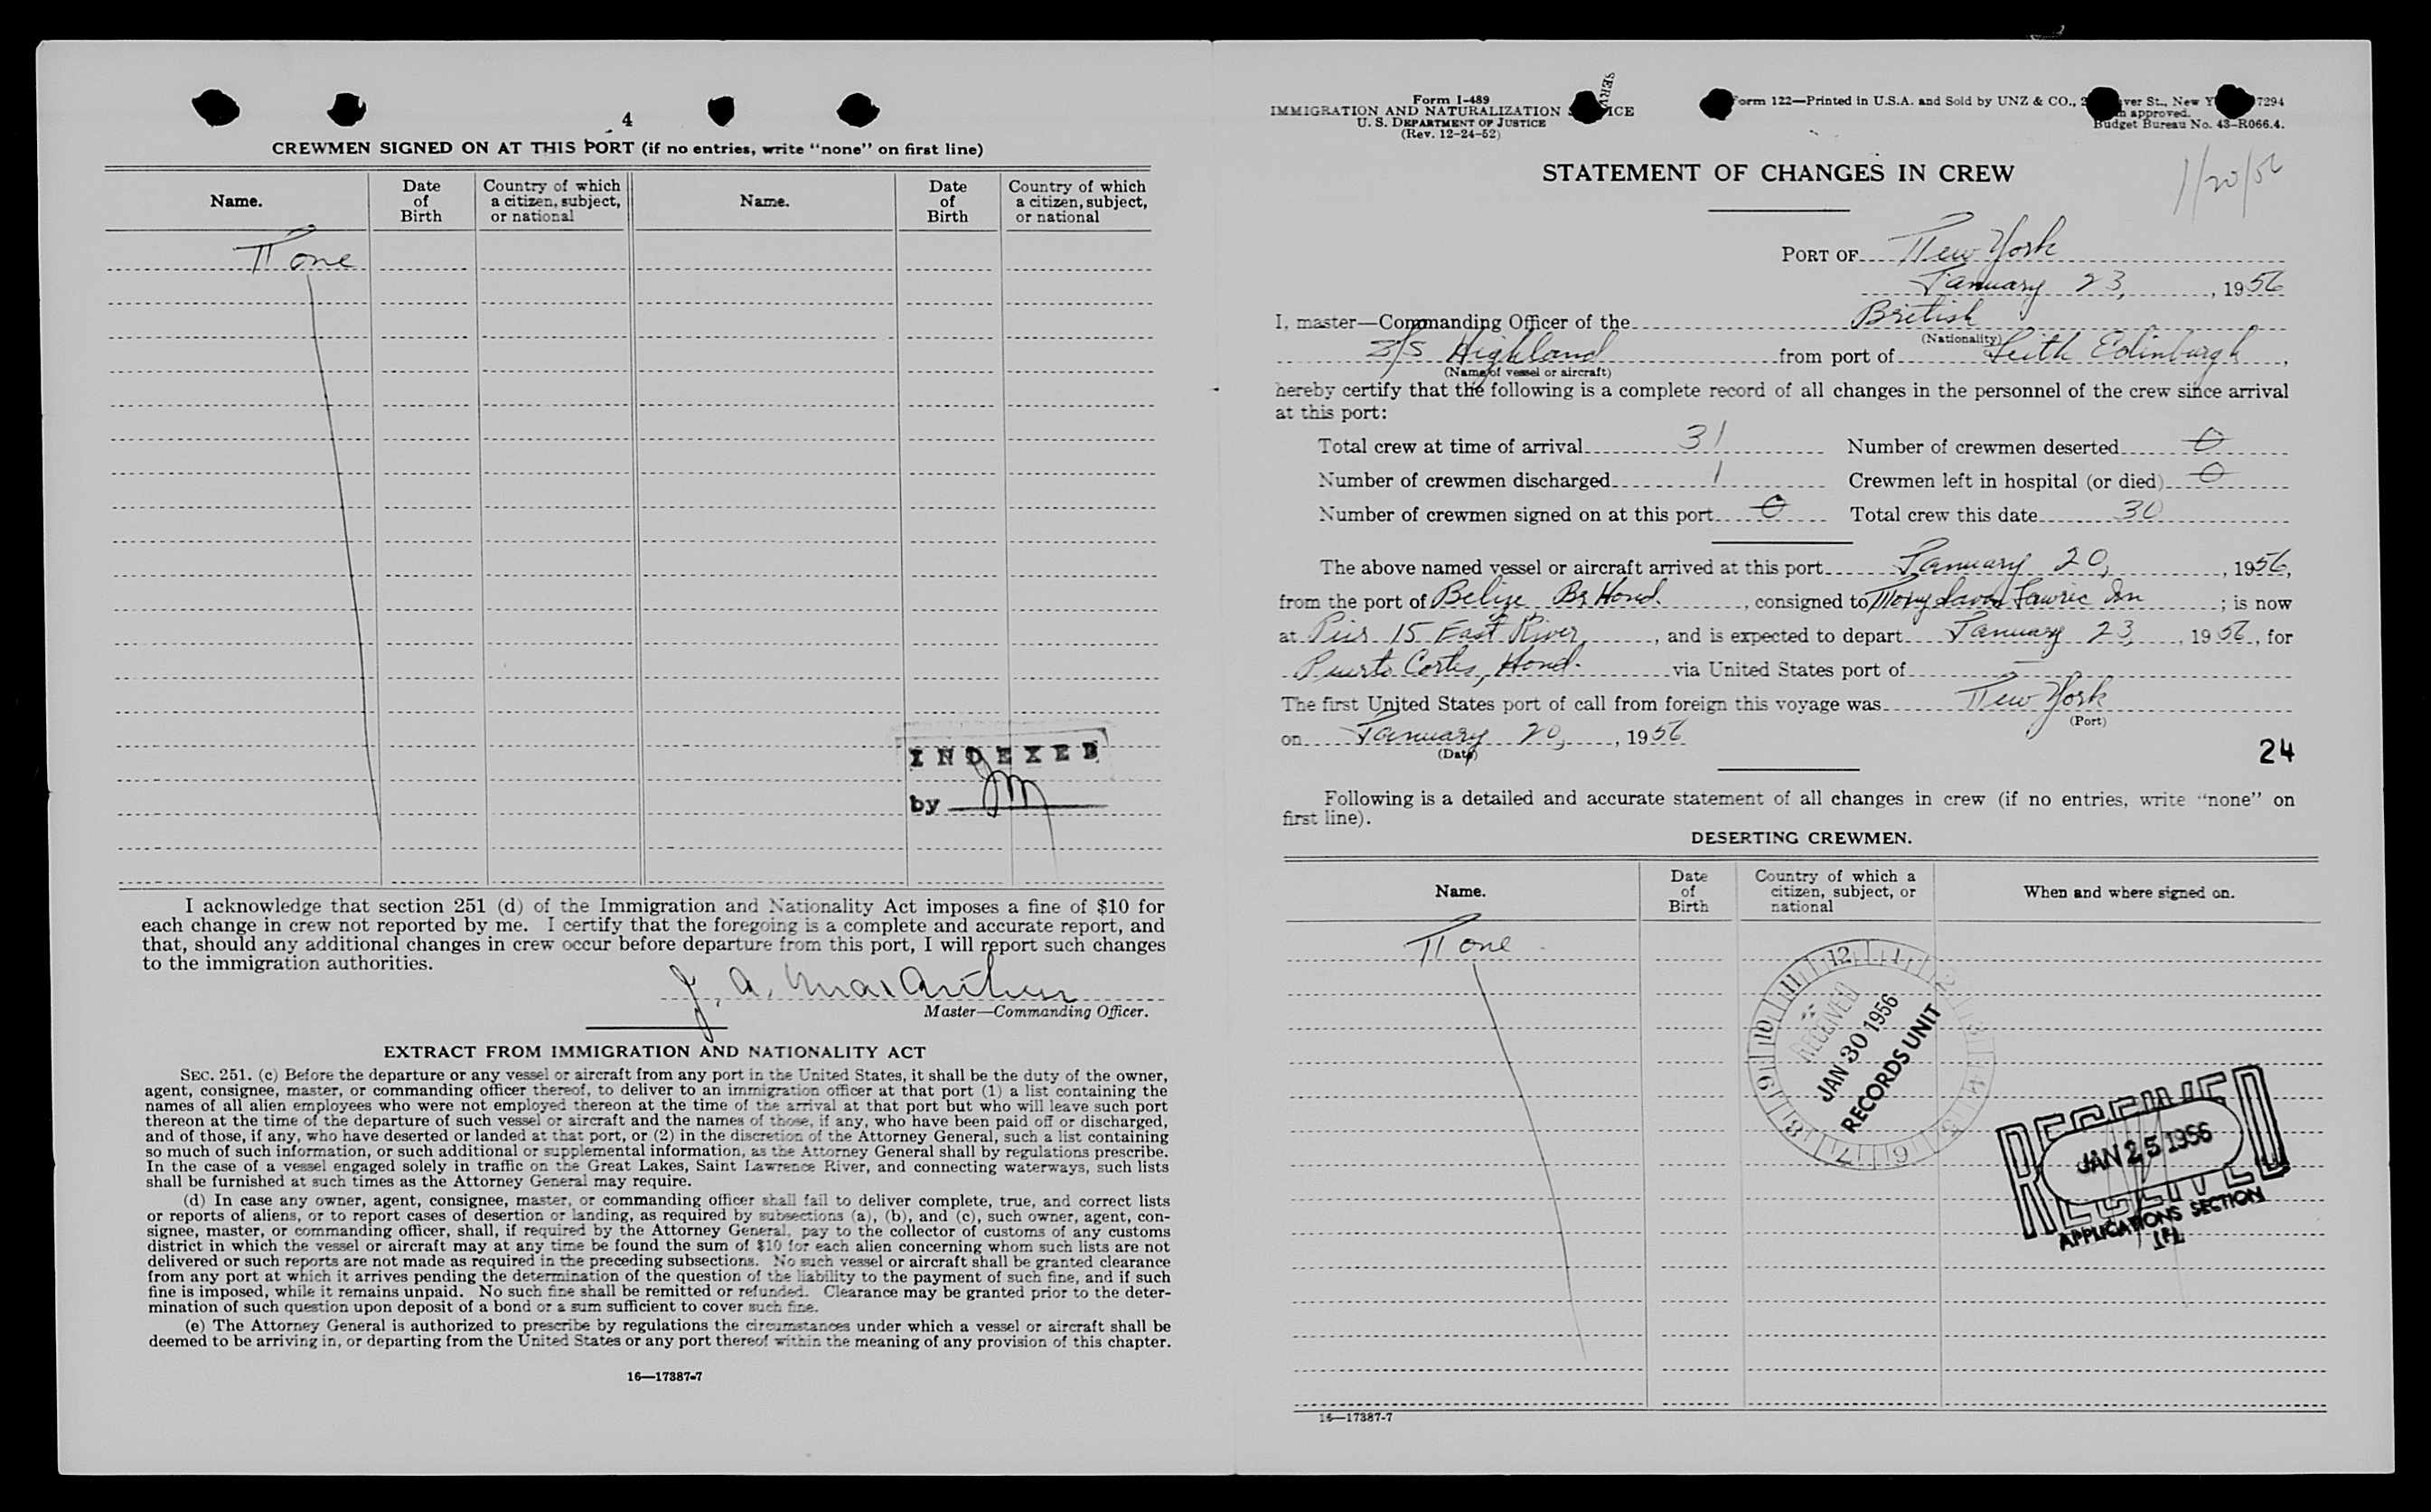 4
CREWMEN SIGNED ON AT THIS PORT (if no entries, write "none" on first line)
Name. Date of Birth Country of which a citizen, subject, or national Name. Date of Birth Country of which a citizen, subject, or national
None
INDEXED
by
I acknowledge that section 251 (d) of the Immigration and Nationality Act imposes a fine of $10 for
each change in crew not reported by me. I certify that the foregoing is a complete and accurate report, and
that, should any additional changes in crew occur before departure from this port, I will report such changes
to the immigration authorities.
J. A. MacArthur
Master—Commanding Officer.
EXTRACT FROM IMMIGRATION AND NATIONALITY ACT
SEC. 251. (c) Before the departure or any vessel or aircraft from any port in the United States, it shall be the duty of the owner,
agent, consignee, master, or commanding officer thereof, to deliver to an immigration officer at that port (1) a list containing the
names of all alien employees who were not employed thereon at the time of the arrival at that port but who will leave such port
thereon at the time of the departure of such vessel or aircraft and the names of those, if any, who have been paid off or discharged,
and of those, if any, who have deserted or landed at that port, or (2) in the discretion of the Attorney General, such a list containing
so much of such information, or such additional or supplemental information, as the Attorney General shall by regulations prescribe.
In the case of a vessel engaged solely in traffic on the Great Lakes, Saint Lawrence River, and connecting waterways, such lists
shall be furnished at such times as the Attorney General may require.
(d) In case any owner, agent, consignee, master, or commanding officer shall fail to deliver complete, true, and correct lists
or reports of aliens, or to report cases of desertion or landing, as required by subsections (a), (b), and (c), such owner, agent, con-
signee, master, or commanding officer, shall, if required by the Attorney General, pay to the collector of customs of any customs
district in which the vessel or aircraft may at any time be found the sum of $10 for each alien concerning whom such lists are not
delivered or such reports are not made as required in the preceding subsections. No such vessel or aircraft shall be granted clearance
from any port at which it arrives pending the determination of the question of the liability to the payment of such fine, and if such
fine is imposed, while it remains unpaid. No such fine shall be remitted or refunded. Clearance may be granted prior to the deter-
mination of such question upon deposit of a bond or a sum sufficient to cover such fine.
(e) The Attorney General is authorized to prescribe by regulations the circumstances under which a vessel or aircraft shall be
deemed to be arriving in, or departing from the United States or any port thereof within the meaning of any provision of this chapter.
16—17387-7
Form I-489
IMMIGRATION AND NATURALIZATION
U. S. DEPARTMENT OF JUSTICE
(Rev. 12-24-52)
Form 122—Printed in U.S.A. and Sold by UNZ & CO., St., New 7294
approved.
Budget Bureau No. 43-R066.4.
STATEMENT OF CHANGES IN CREW
1/20/56
PORT OF New York
January 23, 1956
I, master—Commanding Officer of the British
(Nationality)
S/S Highland from port of Leith Edinburgh,
(Name of vessel or aircraft)
hereby certify that the following is a complete record of all changes in the personnel of the crew since arrival
at this port:
Total crew at time of arrival 31 Number of crewmen deserted 0
Number of crewmen discharged 1 Crewmen left in hospital (or died) 0
Number of crewmen signed on at this port 0 Total crew this date 30
The above named vessel or aircraft arrived at this port January 20, 1956,
from the port of Belize Br Hond., consigned to ; is now
at Pier 15 East River, and is expected to depart January 23, 1956, for
Puerto Cortes, Hond. via United States port of —
The first United States port of call from foreign this voyage was New York
(Port)
on January 20, 1956
(Date)
24
Following is a detailed and accurate statement of all changes in crew (if no entries, write "none" on
first line).
DESERTING CREWMEN.
Name. Date of Birth Country of which a citizen, subject, or national When and where signed on.
None
12 1 2 3 4 5 6 7 8 9 10 11
RECEIVED
JAN 30 1956
RECORDS UNIT
RECEIVED
JAN 25 1956
RECEIVED
APPLICATIONS SECTION
16—17387-7